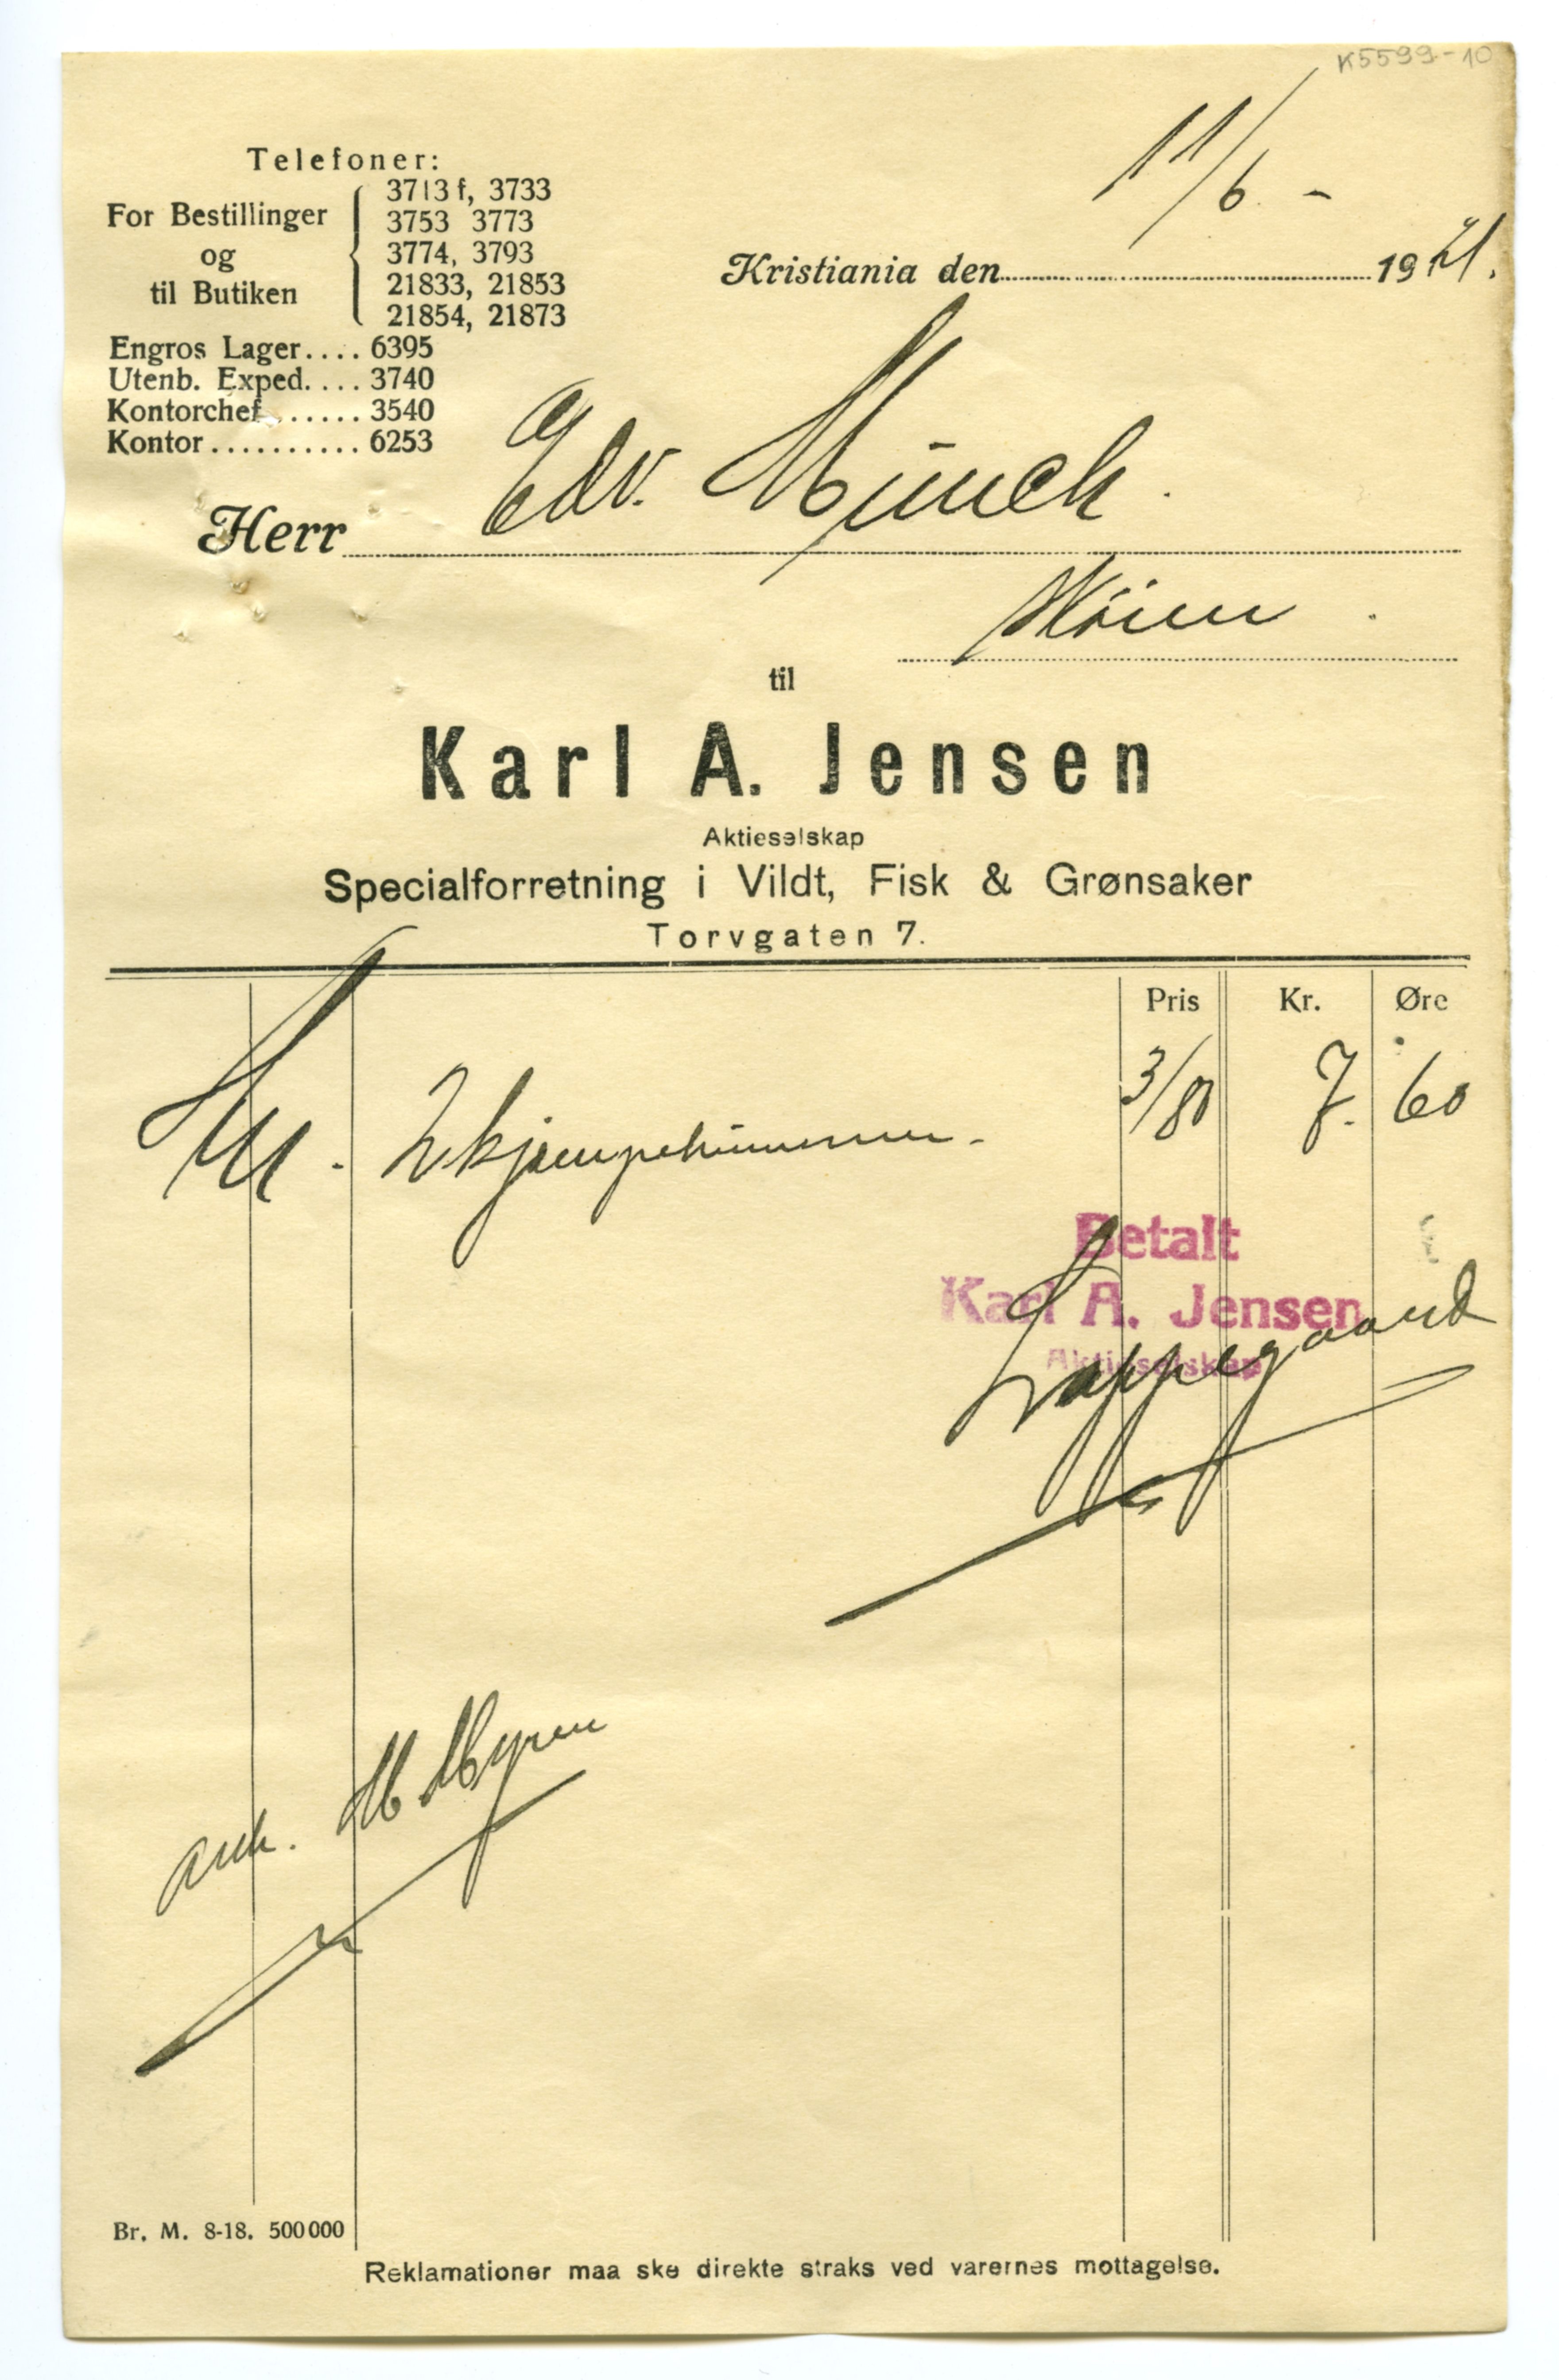 K5599-10
Telefoner:
For Bestillinger
og
til Butiken
3713 f, 3733
3753 3773
3774, 3793
21833, 21853
21854, 21873
Engros Lager.... 6395
Utenb. Exped. ... 3740
Kontorchef ...... 3540
Kontor .......... 6253
11/6 -
Kristiania den 1921.
Herr Edv. Münch.
Skøien
til
Karl A. Jensen
Aktieselskap
Specialforretning i Vildt, Fisk & Grønsaker
Torvgaten 7.
Pris Kr. Øre
2 kjæmpehummer. 3/80 7. 60
Betalt
Karl A. Jensen
Aktieselskap
Loppegaard
M Myren
Br. M. 8-18. 500000
Reklamationer maa ske direkte straks ved varernes mottagelse.